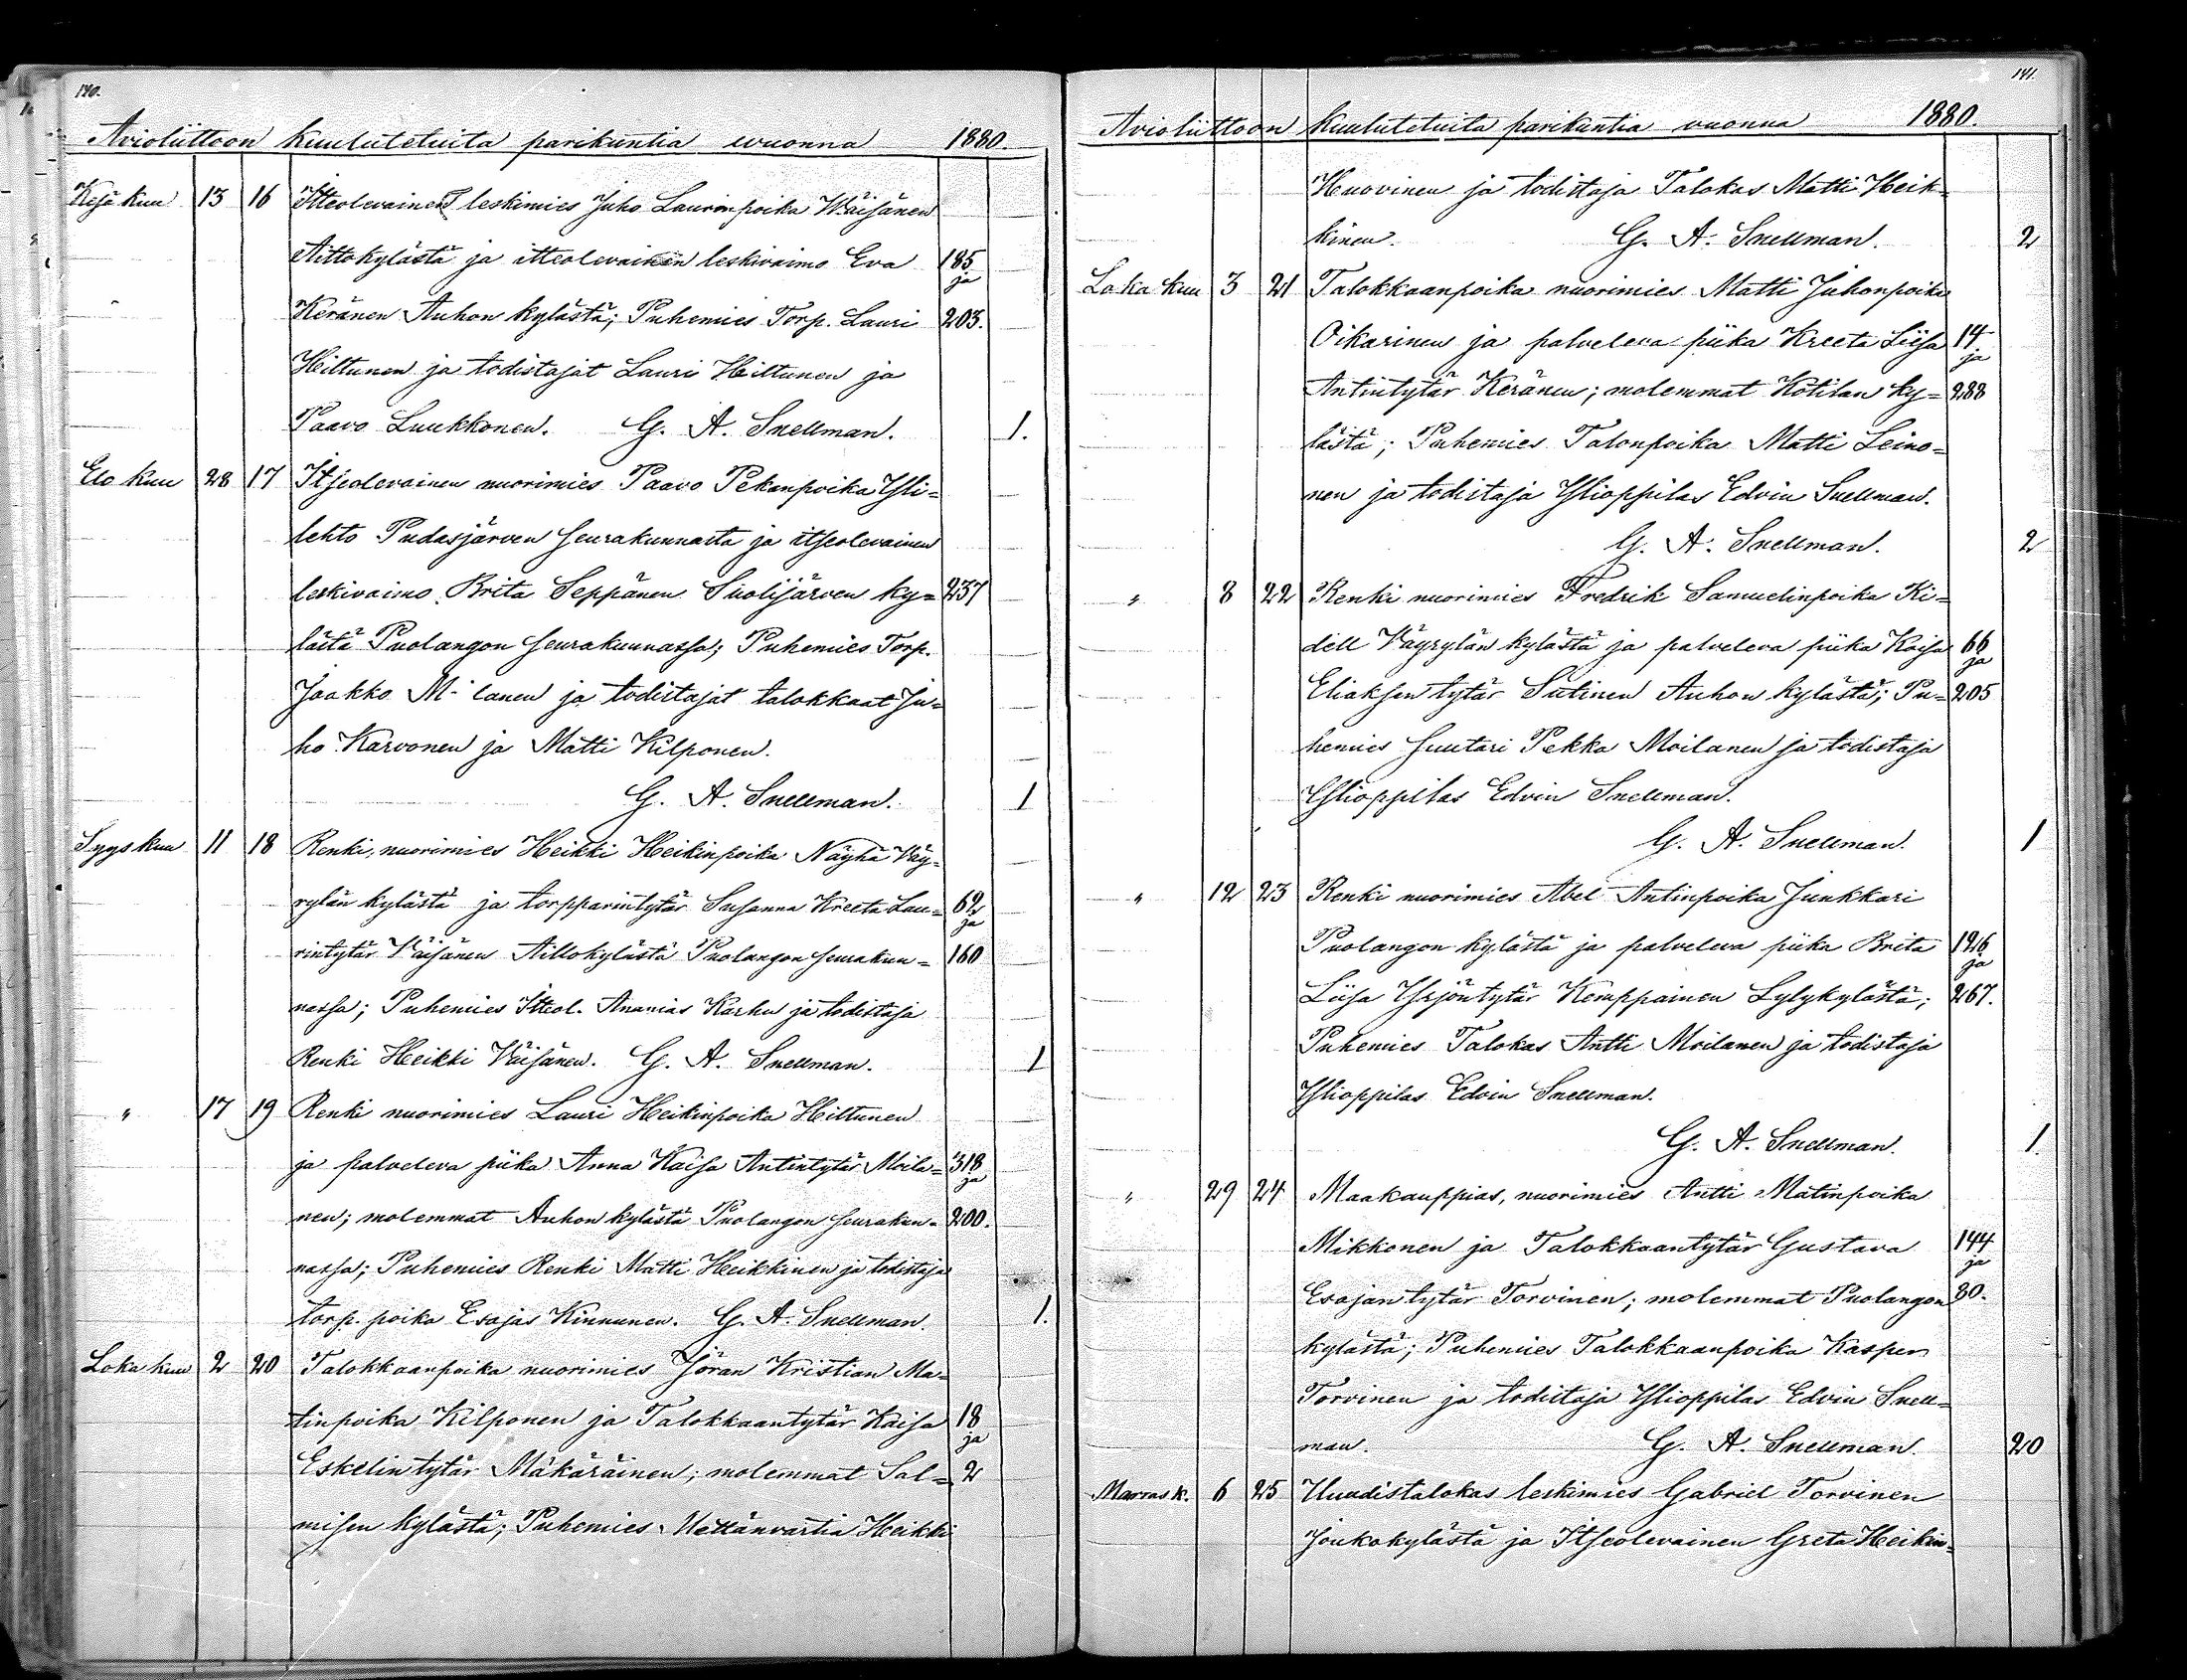 140.
Avioliittoon kuulutetuita parikuntia wuonna 1880.
Kesäkuu 13 16 Itteolevainen leskimies Juho Laurinpoika Wäisänen
Aittokylästä ja itteolevainen leskivaimo Eva 185 ja
Keränen Auhon kylästä; Puhemies Torp. Lauri 203.
Hiltunen ja todistajat Lauri Hiltunen ja
Paavo Luukkonen. G. A. Snellman. 1.
Elo kuu 28 17 Itseolevainen nuorimies Paavo Pekanpoika Yli=
lehto Pudasjärven seurakunnasta ja itseolevainen
leskivaimo Brita Seppänen Suolijärven ky= 237
lästä Puolangon seurakunnassa; Puhemies Torp.
Jaakko M lanen ja todistajat talokkaat Ju=
ho Karvonen ja Matti Kilponen.
G. A. Snellman. 1
Syyskuu 11 18 Renki, nuorimies Heikki Heikinpoika Näyhä Väy=
rylän kylästä ja torpparintytär Susanna Kreeta Lau= 62 ja
rintytär Väisänen Aittokylästä Puolangon seurakun= 160
nassa; Puhemies Itteol. Ananias Karhu ja todistaja
Renki Heikki Väisänen. G. A. Snellman. 1
" 17 19 Renki nuorimies Lauri Heikinpoika Hiltunen
ja palveleva piika Anna Kaisa Antintytär Moila= 318 ja
nen; molemmat Auhon kylästä Puolangon seurakun= 200.
nassa; Puhemies Renki Matti Heikkinen ja todistaja
torp. poika Esajas Kinnunen. G. A. Snellman. 1.
Loka kuu 2 20 Talokkaanpoika nuorimies Jöran Kristian Ma=
tinpoika Kilponen ja Talokkaantytär Kaisa 18 ja
Eskelintytär Mäkäräinen; molemmat Sal= 2
misen kylästä; Puhemies Mettänvartia Heikki
141.
Avioliittoon kuulutetuita parikuntia vuonna 1880.
Huovinen ja todistaja Talokas Matti Heik=
kinen. G. A. Snellman. 2
Loka kuu 3 21 Talokkaanpoika nuorimies Matti Juhonpoika
Oikarinen ja palveleva piika Kreeta Liisa 14 ja
Antintytär Keränen; molemmat Kotilan ky= 288
lästä; Puhemies Talonpoika Matti Leino=
nen ja todistaja Ylioppilas Edvin Snellman.
G. A. Snellman. 2
" 8 22 Renki nuorimies Fredrik Samuelinpoika Ki=
dell Väyrylän kylästä ja palveleva piika Kaisa 66 ja
Eliaksentytär Sutinen Auhon kylästä; Pu= 205
hemies suutari Pekka Moilanen ja todistaja
Ylioppilas Edvin Snellman.
G. A. Snellman. 1
" 12 23 Renki nuorimies Abel Antinpoika Junkkari
Puolangon kylästä ja palveleva piika Brita 126 ja
Liisa Yrjöntytär Kemppainen Lylykylästä; 267.
Puhemies Talokas Antti Moilanen ja todistaja
Ylioppilas Edvin Snellman.
G. A. Snellman. 1.
" 29 24 Maakauppias, nuorimies Antti Matinpoika
Mikkonen ja Talokkaantytär Gustava 144 ja
Esajantytär Torvinen; molemmat Puolangon 80.
kylästä; Puhemies Talokkaanpoika Kasper
Torvinen ja todistaja Ylioppilas Edvin Snell=
man. G. A. Snellman. 20
Marrask. 6 25 Uuudistalokas leskimies Gabriel Torvinen
Joukokylästä ja Itseolevainen Greta Heikin=